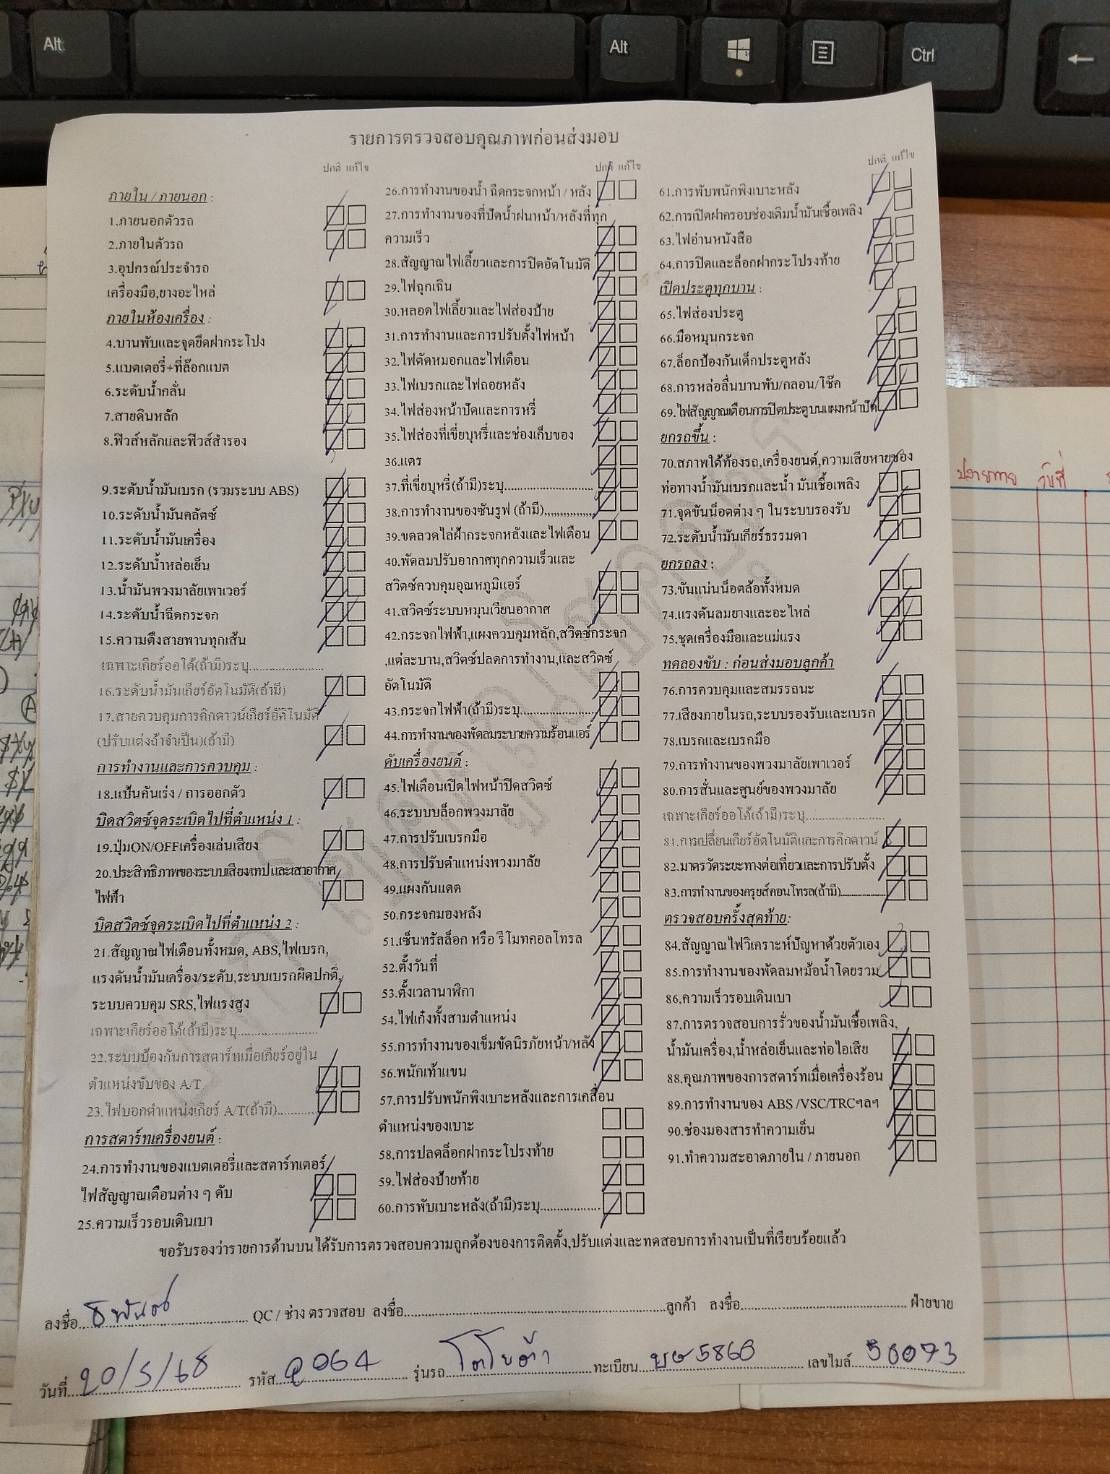 Alt
Alt
Ctrl
รายการตรวจสอบคุณภาพก่อนส่งมอบ
ปกติ แก้ไข
ภายใน / ภายนอก :
1.ภายนอกตัวรถ
2.ภายในตัวรถ
3.อุปกรณ์ประจำรถ
เครื่องมือ,ยางอะไหล่
ภายในห้องเครื่อง :
4.บานพับและจุดยึดฝากระโปง
5.แบตเตอรี่+ที่ล๊อกแบต
6.ระดับน้ำกลั่น
7.สายดินหลัก
8.ฟิวส์หลักและฟิวส์สำรอง
9.ระดับน้ำมันเบรก (รวมระบบ ABS)
10.ระดับน้ำมันคลัตซ์
11.ระดับน้ำมันเครื่อง
12.ระดับน้ำหล่อเย็น
13.น้ำมันพวงมาลัยเพาเวอร์
14.ระดับน้ำฉีดกระจก
15.ความตึงสายพานทุกเส้น
เฉพาะเกียร์ออโต้(ถ้ามี)ระบุ
16.ระดับน้ำมันเกียร์อัตโนมัติ(ถ้ามี)
17.สายควบคุมการคิกดาวน์เกียร์อัติโนมัติ
(ปรับแต่งถ้าจำเป็น)(ถ้ามี)
การทำงานและการควบคุม :
18.แป้นคันเร่ง / การออกตัว
บิดสวิตซ์จุดระเบิดไปที่ตำแหน่ง 1 :
19.ปุ่มON/OFFเครื่องเล่นเสียง
20.ประสิทธิภาพของระบบเสียงเทปและเสาอากาศ
ไฟฟ้า
บิดสวิตซ์จุดระเบิดไปที่ตำแหน่ง 2 :
21.สัญญาณไฟเตือนทั้งหมด, ABS,ไฟเบรก,
แรงดันน้ำมันเครื่อง/ระดับ,ระบบเบรกผิดปกติ,
ระบบควบคุม SRS,ไฟแรงสูง
เฉพาะเกียร์ออโต้(ถ้ามี)ระบุ
22.ระบบป้องกันการสตาร์ทเมื่อเกียร์อยู่ใน
ตำแหน่งขับของ A/T
23.ไฟบอกตำแหน่งเกียร์ A/T(ถ้ามี)
การสตาร์ทเครื่องยนต์ :
24.การทำงานของแบตเตอรี่และสตาร์ทเตอร์
ไฟสัญญาณเตือนต่าง ๆ ดับ
25.ความเร็วรอบเดินเบา
ปกติ แก้ไข
26.การทำงานของน้ำ ฉีดกระจกหน้า / หลัง
27.การทำงานของที่ปัดน้ำฝนหน้า/หลังที่ทุก
ความเร็ว
28.สัญญาณไฟเลี้ยวและการปิดอัตโนมัติ
29.ไฟฉุกเฉิน
30.หลอดไฟเลี้ยวและไฟส่องป้าย
31.การทำงานและการปรับตั้งไฟหน้า
32.ไฟตัดหมอกและไฟเตือน
33.ไฟเบรกและไฟถอยหลัง
34.ไฟส่องหน้าปัดและการหรี่
35.ไฟส่องที่เขี่ยบุหรี่และช่องเก็บของ
36.แตร
37.ที่เขี่ยบุหรี่(ถ้ามี)ระบุ
38.การทำงานของซันรูฟ (ถ้ามี)
39.ขดลวดไล่ฝ้ากระจกหลังและไฟเตือน
40.พัดลมปรับอากาศทุกความเร็วและ
สวิตซ์ควบคุมอุณหภูมิแอร์
41.สวิตซ์ระบบหมุนเวียนอากาศ
42.กระจกไฟฟ้า,แผงควบคุมหลัก,สวิตซ์กระจก
,แต่ละบาน,สวิตซ์ปลดการทำงาน,และสวิตซ์
อัตโนมัติ
43.กระจกไฟฟ้า(ถ้ามี)ระบุ
44.การทำงานของพัดลมระบายความร้อนแอร์
ดับเครื่องยนต์ :
45.ไฟเตือนเปิดไฟหน้าปิดสวิตซ์
46.ระบบบล็อกพวงมาลัย
47.การปรับเบรกมือ
48.การปรับตำแหน่งพวงมาลัย
49.แผงกันแดด
50.กระจกมองหลัง
51.เซ็นทรัลล็อก หรือ รีโมทคอลโทรล
52.ตั้งวันที่
53.ตั้งเวลานาฬิกา
54.ไฟเก๋งทั้งสามตำแหน่ง
55.การทำงานของเข็มขัดนิรภัยหน้า/หลัง
56.พนักเท้าแขน
57.การปรับพนักพิงเบาะหลังและการเคลื่อน
ตำแหน่งของเบาะ
58.การปลดล็อกฝากระโปรงท้าย
59.ไฟส่องป้ายท้าย
60.การพับเบาะหลัง(ถ้ามี)ระบุ
ปกติ แก้ไข
61.การพับพนักพิงเบาะหลัง
62.การเปิดฝาครอบช่องเติมน้ำมันเชื้อเพลิง
63.ไฟอ่านหนังสือ
64.การปิดและล็อกฝากระโปรงท้าย
เปิดประตูทุกบาน :
65.ไฟส่องประตู
66.มือหมุนกระจก
67.ล็อกป้องกันเด็กประตูหลัง
68.การหล่อลื่นบานพับ/กลอน/โช๊ค
69.ไฟสัญญาณเตือนการปิดประตูบนแผงหน้าปัด
ยกรถขึ้น :
70.สภาพใต้ท้องรถ,เครื่องยนต์,ความเสียหายของ
ท่อทางน้ำมันเบรกและน้ำ มันเชื้อเพลิง
71.จุดขันน็อตต่าง ๆ ในระบบรองรับ
72.ระดับน้ำมันเกียร์ธรรมดา
ยกรถลง :
73.ขันแน่นน็อตล้อทั้งหมด
74.แรงดันลมยางและอะไหล่
75.ชุดเครื่องมือและแม่แรง
ทดลองขับ : ก่อนส่งมอบลูกค้า
76.การควบคุมและสมรรถนะ
77.เสียงภายในรถ,ระบบรองรับและเบรก
78.เบรกและเบรกมือ
79.การทำงานของพวงมาลัยเพาเวอร์
80.การสั่นและศูนย์ของพวงมาลัย
เฉพาะเกียร์ออโต้(ถ้ามี)ระบุ
81.การเปลี่ยนเกียร์อัตโนมัติและการคิกดาวน์
82.มาตรวัดระยะทางต่อเที่ยวและการปรับตั้ง
83.การทำงานของครูยส์คอนโทรล(ถ้ามี)
ตรวจสอบครั้งสุดท้าย:
84.สัญญาณไฟวิเคราะห์ปัญหาด้วยตัวเอง
85.การทำงานของพัดลมหม้อน้ำโดยรวม
86.ความเร็วรอบเดินเบา
87.การตรวจสอบการรั่วของน้ำมันเชื้อเพลิง,
น้ำมันเครื่อง,น้ำหล่อเย็นและท่อไอเสีย
88.คุณภาพของการสตาร์ทเมื่อเครื่องร้อน
89.การทำงานของ ABS /VSC/TRCฯลฯ
90.ช่องมองสารทำความเย็น
91.ทำความสะอาดภายใน / ภายนอก
ขอรับรองว่ารายการด้านบนได้รับการตรวจสอบความถูกต้องของการติดตั้ง,ปรับแต่งและทดสอบการทำงานเป็นที่เรียบร้อยแล้ว
ลงชื่อ QC / ช่าง ตรวจสอบ ลงชื่อ ลูกค้า ลงชื่อ ฝ่ายขาย
วันที่ 20/5/68 รหัส 2064 รุ่นรถ โตโยต้า ทะเบียน 5866 เลขไมล์ 50073
ปลายทาง วันที่